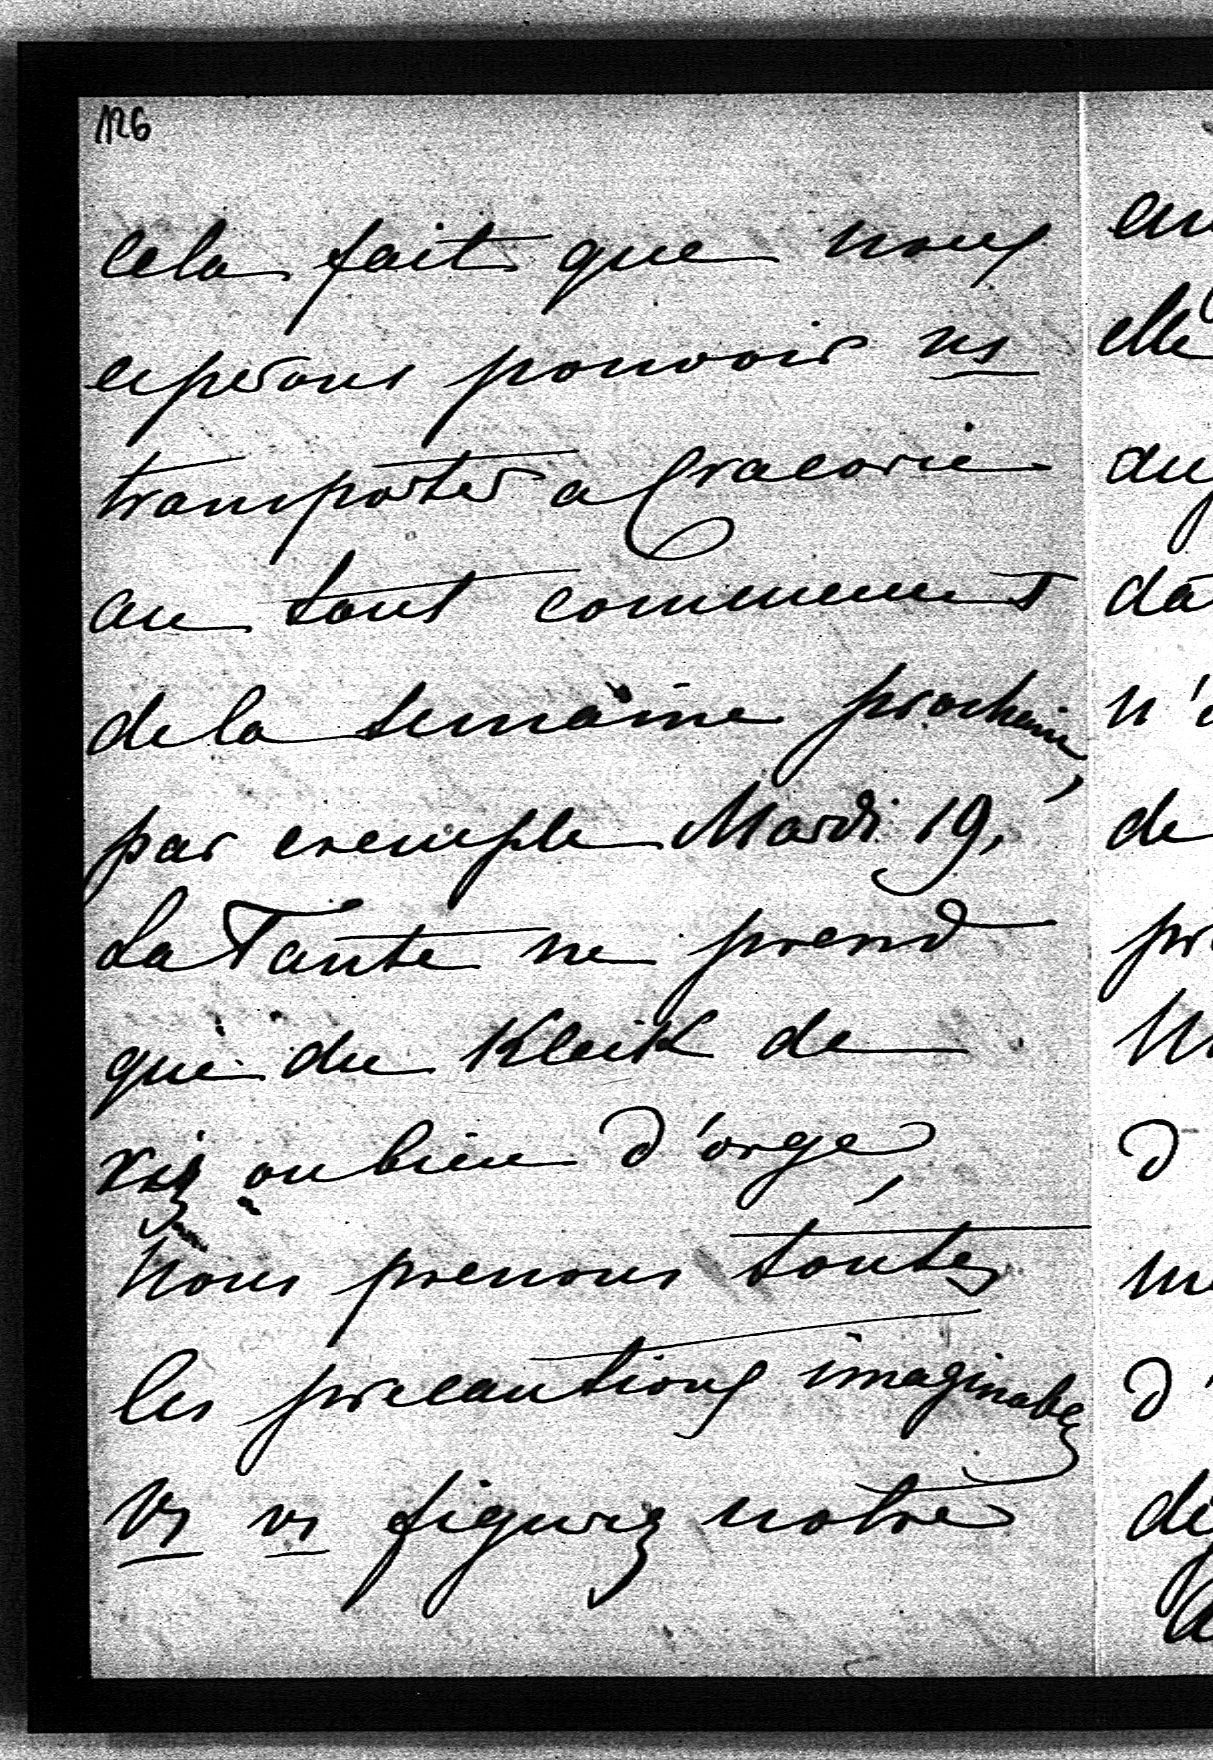 126
cela fait que nous
esperons pouvoir ns
transporter a Cracovie
au tout commencement
de la semaine prochaine,
par exemple Mardi 19,
La Tante ne prend
que du Kleik de
riz ou bien d'orge,
Nous prenons toutes
les precautions imaginables
Vs vs figurez notre